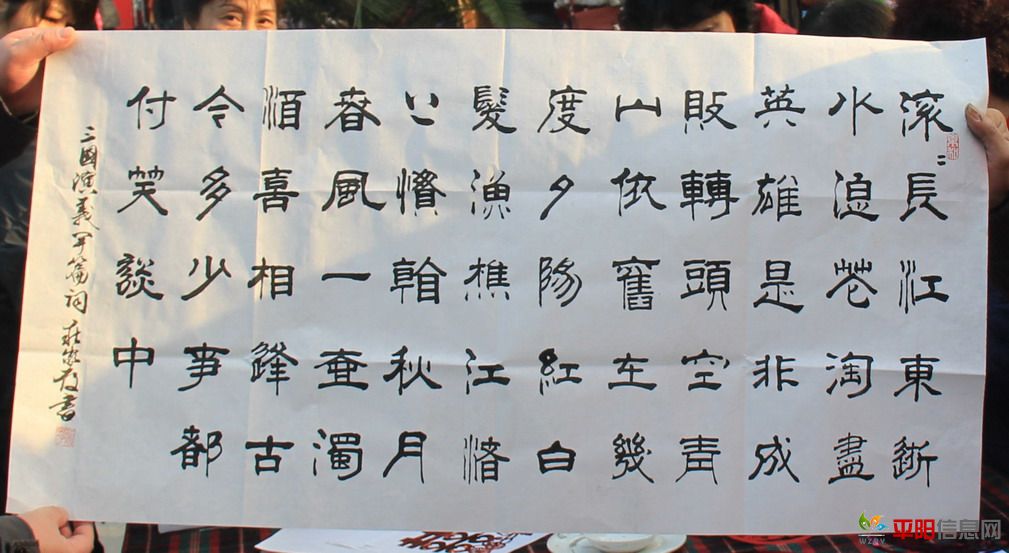 滚〻長江東逝
水浪花淘盡
英雄是非成
敗轉頭空青
山依舊在幾
度夕陽紅白
髮漁樵江渚
上慣看秋月
春風一壺濁
酒喜相逢古
今多少事都
付笑談中
三國演義开篇词 書
平阳信息网